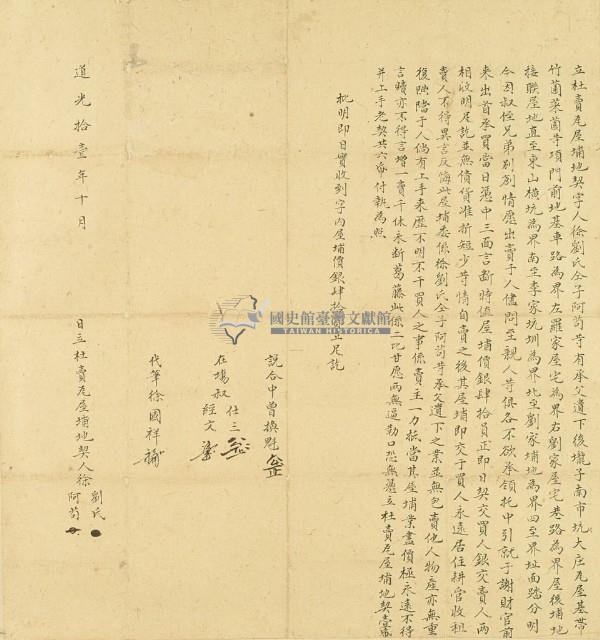 立杜賣瓦屋埔地契字人徐劉氏仝子阿苟等有承父遺下後壠子南市坑大庄瓦屋基帶
竹菌菜菌等項門前地基車路為界左羅家屋宅為界右劉家屋宅巷路為界屋後埔地
接聯屋地直至東山橫坑為界南至李家坑圳為界北至劉家埔地為界四至界址面踏分明
今因叔侄兄弟別創情愿出賣于人儘問至親人等俱各不欲承領托中引就于謝財官前
來出首承買當日憑中三面言斷時值屋埔價銀肆拾員正即日契交買人銀交賣人兩
相收明足訖並無債貨准折短少等情自賣之後其屋埔即交于買人永遠居住耕官收租
賣人不得異言反悔此屋埔委係徐劉氏仝子阿苟等承父遺下之業並無包賣他人物產亦無重
復典當于人倘有上手來歷不明不干買人之事係賣主一力抵當其屋埔業盡價極永遠不得
言贖亦不得言增一賣千休永斷葛藤此係二比甘愿兩無逼勒口恐無憑立杜賣瓦屋埔地契壹紙
并上手老契共六紙付執為照
批明即日實收到字內屋埔價銀肆拾員正足訖
說合中曾換魁
在場叔 仕三
經文
代筆徐國祥
道光拾壹年十月 日立杜賣瓦屋埔地契人徐 劉氏
阿苟
國史館臺灣文獻館
TAIWAN HISTORICA